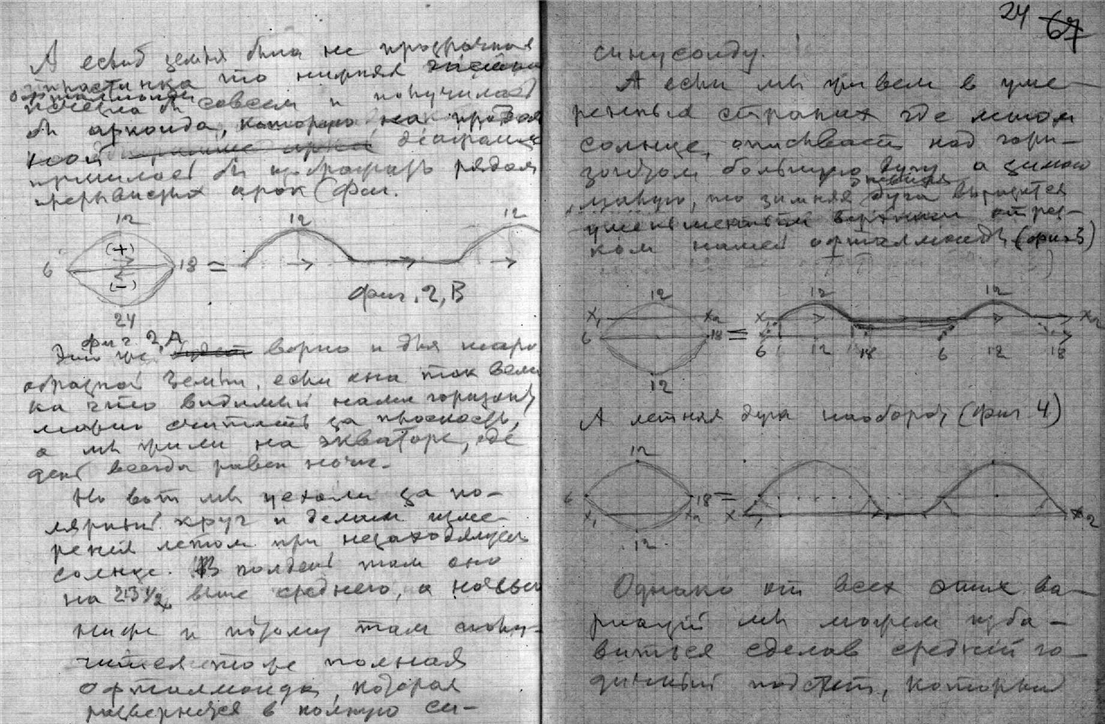 А еслиб земля была не прозрачная
пластинка то нижняя
офталмоиды
исчезла бы совсем и получилась
бы аркоида, которую на
ной диаграмме
пришлось бы изобразить рядом
прерывистых арок (Фиг.
12
(+)
6
18 =
(-)
24
12
12
фиг. 2, В
фиг. 2, А
Это же верно и для шаро
образной Земли, если она так вели
ка что видимый нами горизонт
можно считать за плоскость,
а мы жили на экваторе, где
день всегда равен ночи.
Но вот мы уехали за по-
лярный круг и делаем изме-
рения летом при незаходящем
солнце. В полдень там оно
на 23½ выше среднего, а ночью
ниже и потому там полу-
чится тоже полная
офталмоида, которая
развернется в полную си-
24 67
синусоиду.
А если мы живем в уме-
ренных странах где летом
солнце описывает над гори-
зонтом большую дугу а зимою
малую, то зимняя дуга выразится
уменьшенным верхним отрез-
ком нашей офталмоиды (фиг 3)
12
X₁
X₂
6
18 =
12
12
12
X₁
X₂
6
12
18
6
12
18
А летняя дуга наоборот (фиг 4)
12
6
18 =
X₁
X₂
12
X₁
X₂
Однако от всех этих ва-
риаций мы можем изба-
виться сделав средний го-
дичный подсчет, который